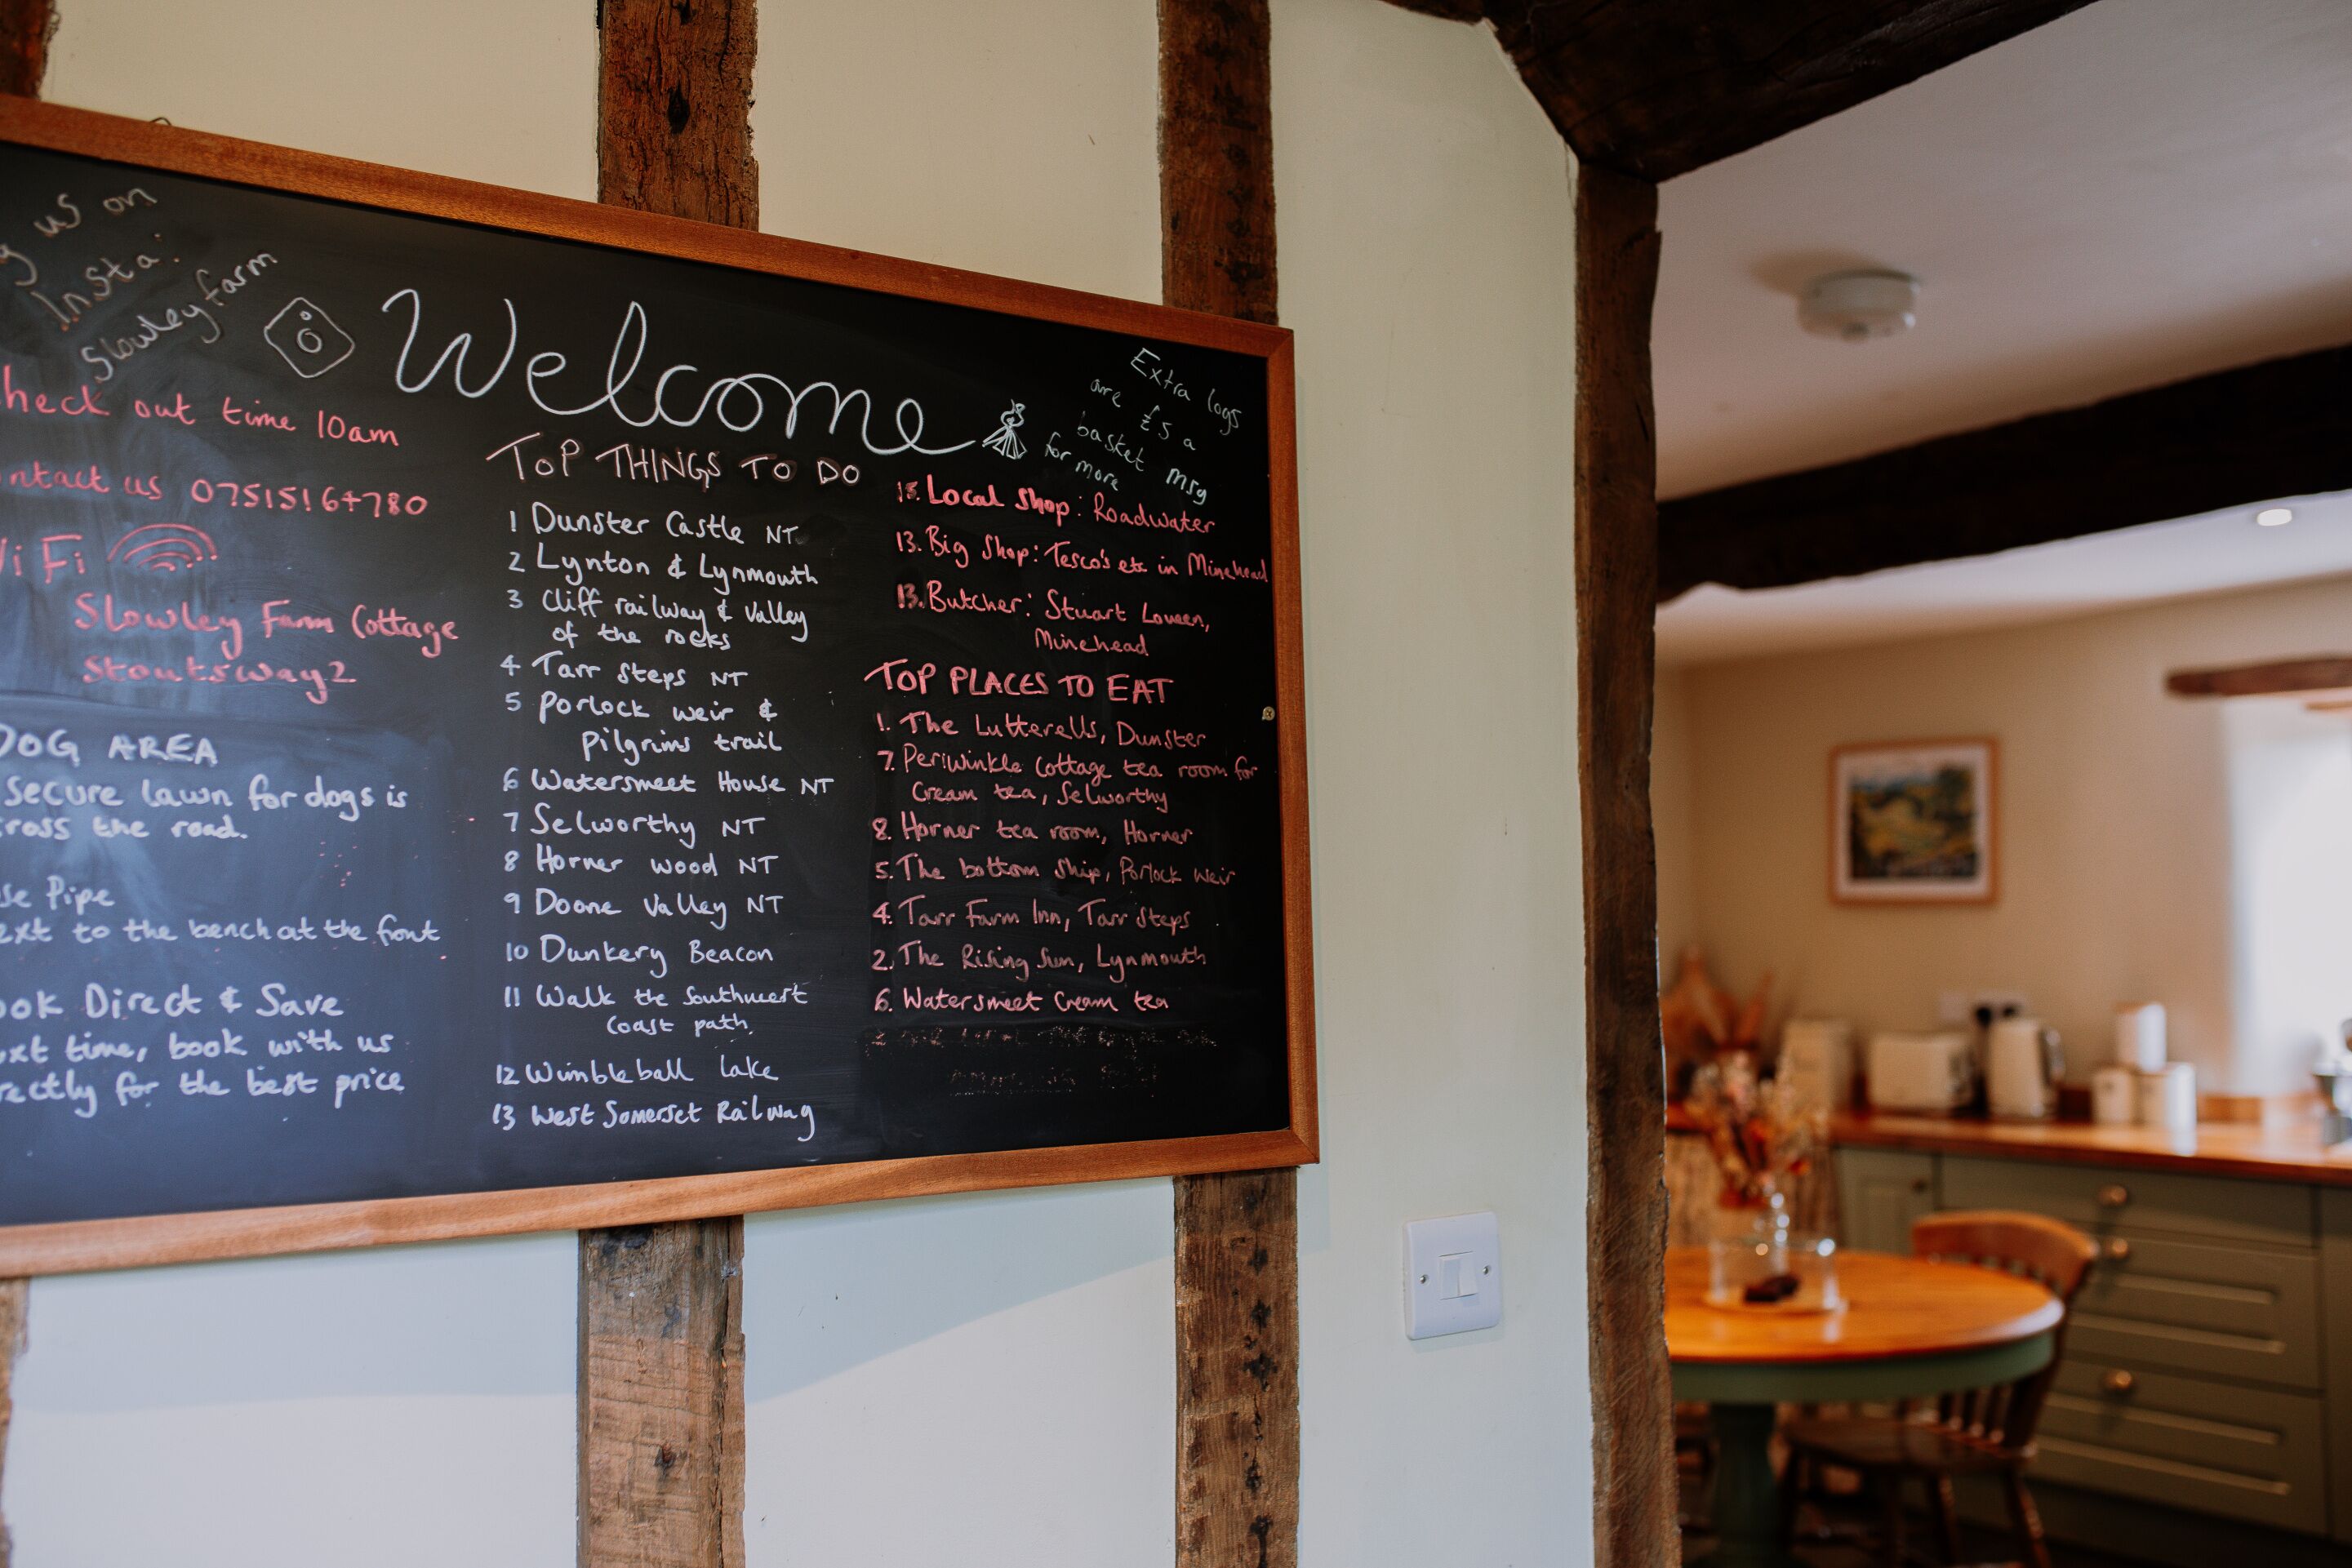 us on
Insta:
Slowley farm
Welcome
Extra logs
are £5 a
basket msg
for more
heck out time 10am
ntact us 07515164780
iFi
Slowley Farm Cottage
Stoutsway2
DOG AREA
secure lawn for dogs is
ross the road.
se Pipe
ext to the bench at the front
ook Direct & Save
ext time, book with us
rectly for the best price
TOP THINGS TO DO
1 Dunster Castle NT
2 Lynton & Lynmouth
3 Cliff railway & Valley
of the rocks
4 Tarr Steps NT
5 Porlock weir &
Pilgrims trail
6 Watersmeet House NT
7 Selworthy NT
8 Horner wood NT
9 Doone Valley NT
10 Dunkery Beacon
11 Walk the Southwest
Coast path.
12 Wimbleball Lake
13 West Somerset Railway
Local Shop: Roadwater
13. Big Shop: Tesco's etc in Minehead
13. Butcher: Stuart
Minehead
TOP PLACES TO EAT
1. The Lutterells, Dunster
7. Periwinkle Cottage tea room for
Cream tea, Selworthy
8. Horner tea room, Horner
5. The bottom Ship, Porlock Weir
4. Tarr Farm Inn, Tarr Steps
2. The Rising Sun, Lynmouth
6. Watersmeet Cream tea